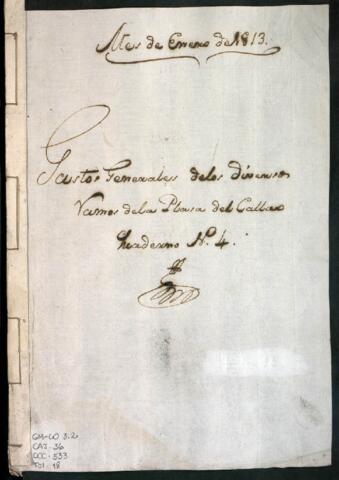 Mes de Enero de 1813.
Gastos Generales delos diversos
Ramos dela Plasa del Callao
Quaderno N. 4.
GM-CO 3.2
CAJ. 36
DOC. 533
Fol. 18